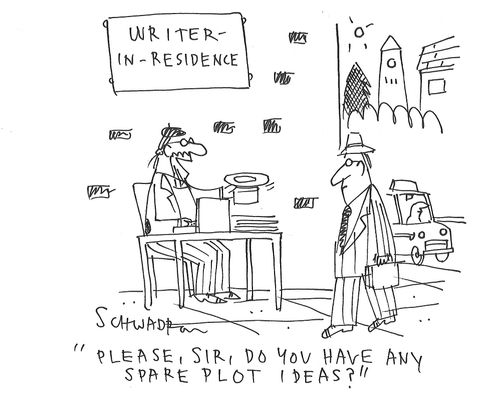 WRITER-
IN-RESIDENCE
SCHWADRON
"PLEASE, SIR, DO YOU HAVE ANY
SPARE PLOT IDEAS?"